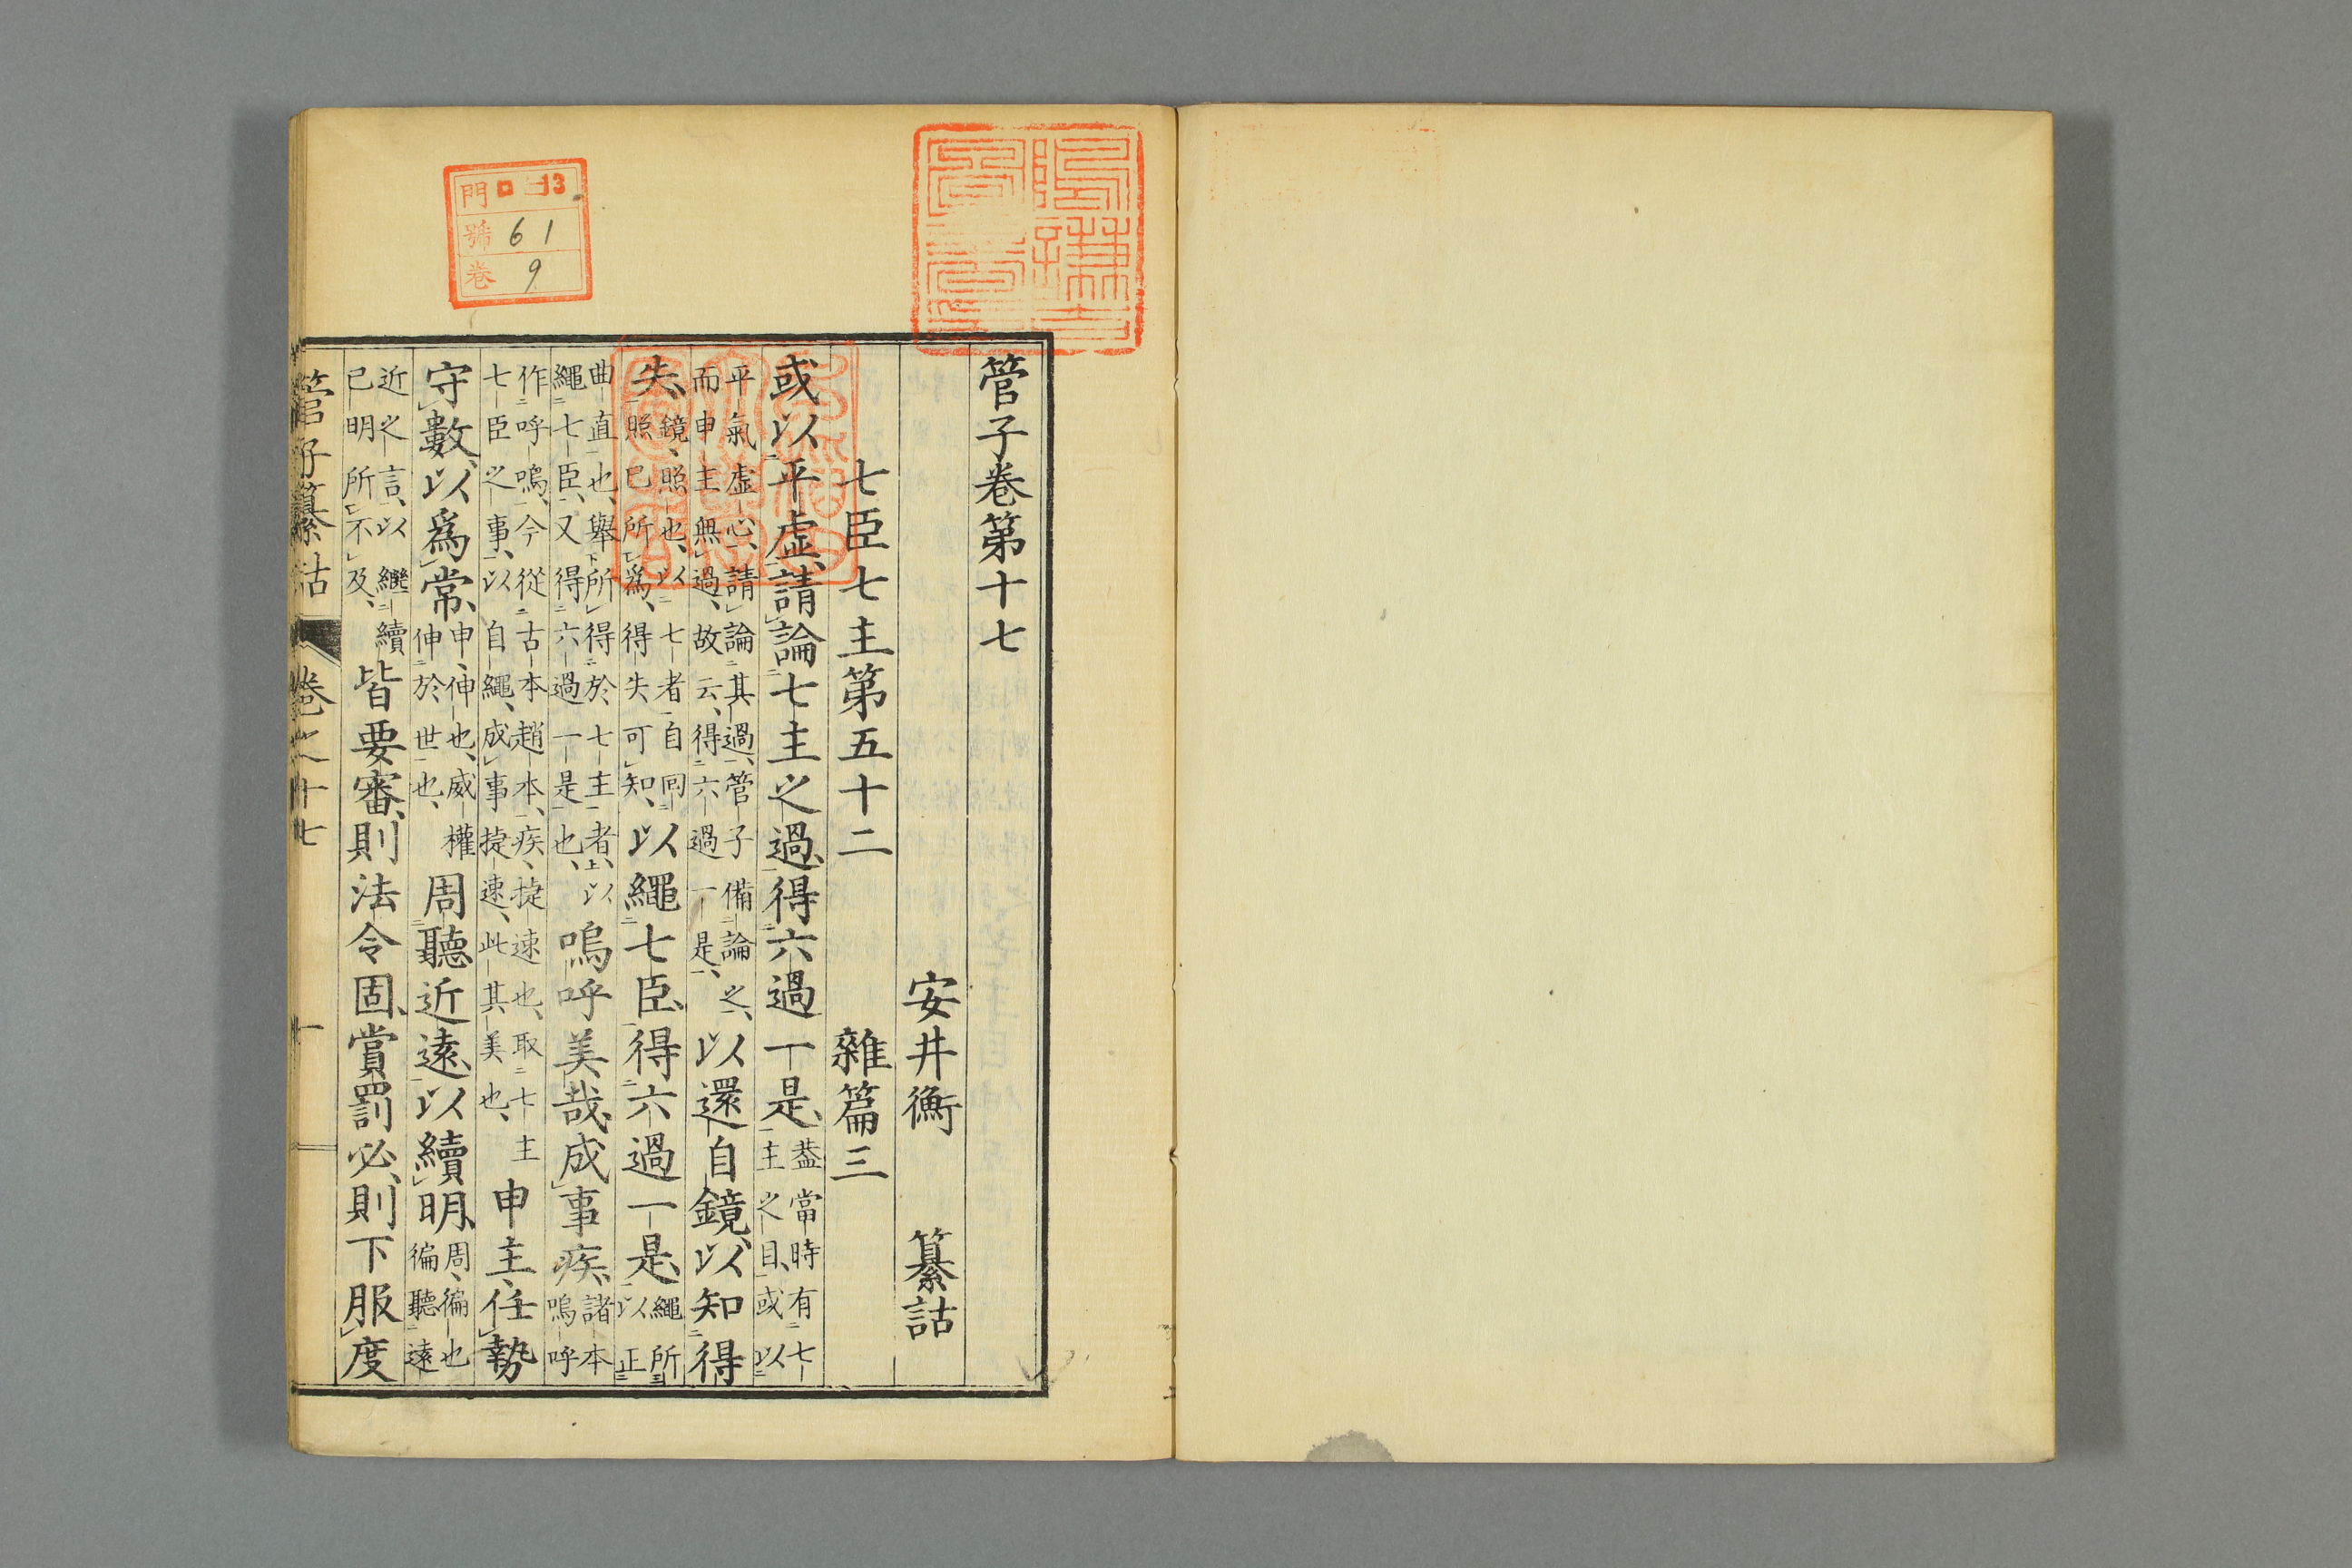 管子卷第十七
安井衡 纂詁
七臣七主第五十二 雜篇三
或以平虛請論七主之過得六過一是蓋當時有七主之目或以
平氣虛心請論其過管子備論之而申主無過故云得六過一是以還自鏡以知得
失鏡照也以七者自同照己所爲得失可知以繩七臣得六過一是繩所以正
曲直也舉所得於七主者以繩七臣又得六過一是也嗚呼美哉成事疾諸本嗚呼
作呼嗚今從古本趙本疾捷速也取七主七臣之事以自繩成事捷速此其美也申主任勢
守數以爲常申伸也威權伸於世也周聽近遠以續明周徧也徧聽遠
近之言以繼續己明所不及皆要審則法令固賞罰必則下服度
管子纂詁 卷之十七 一
門 ロ 13
號 61
卷 9